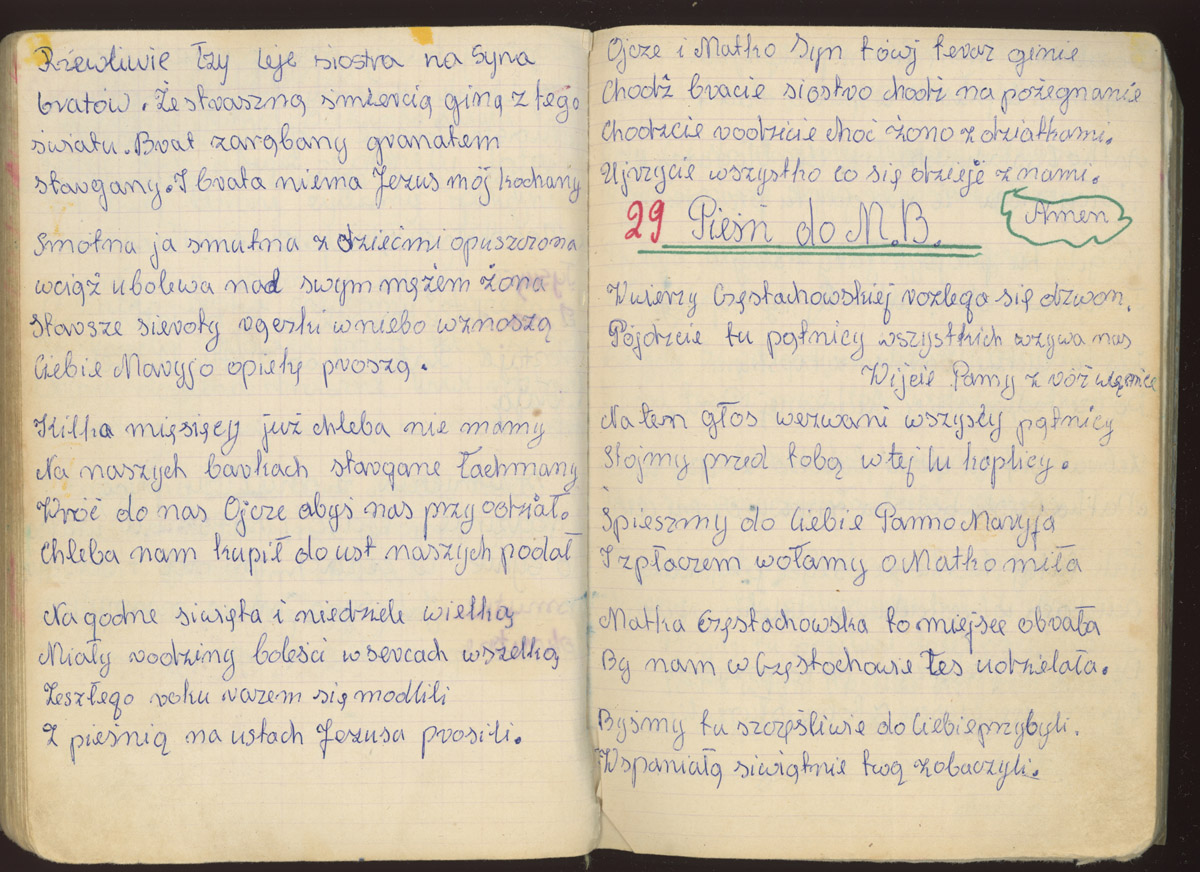 Rzewliwie łzy leje siostra na Syna
bratów. Że straszną śmiercią giną z tego
świata. Brat zarąbany granatem
stargany. I brata niema Jezus mój kochany
Smotna ja smutna z dziećmi opuszczona
wciąż ubolewa nad swym mężem żona
Starsze sieroty rączki w niebo wznoszą
Ciebie Maryjo opiekę proszą.
Kilka mięsięcy już chleba nie mamy
Na naszych barkach stargane łachmany
Wróć do nas Ojcze abyś nas przyodział.
Chleba nam kupił do ust naszych podał
Na godne siwięta i niedziele wielką
Miały rodziny boleści w sercach wszelką
Zeszłego roku razem się modlili
Z pieśnią na ustach Jezusa prosili.
Ojcze i Matko Syn twój teraz ginie
Chodź bracie siostro chodź na pożegnanie
Chodzcie rodzicie choć żono z dziatkami.
Ujrzycie wszystko co się dzieje z nami.
Amen
29 Pieśń do M.B.
Z wierzy Częstachowskiej rozlega się dzwon.
Pójdzcie tu pątnicy wszystkich wzywa nas
Wijcie Panny z róż więńce
Na ten głos wezwani wszyscy pątnicy
Stojmy przed tobą w tej tu kaplicy.
Spieszmy do Ciebie Panno Maryja
I z płaczem wołamy o Matko miła
Matka Częstachowska to miejsce obrała
By nam w Częstochowie łes udzielała.
Byśmy tu szczęśliwie do Ciebie przybyli.
Wspaniałą siwiątnie twą zobaczyli.